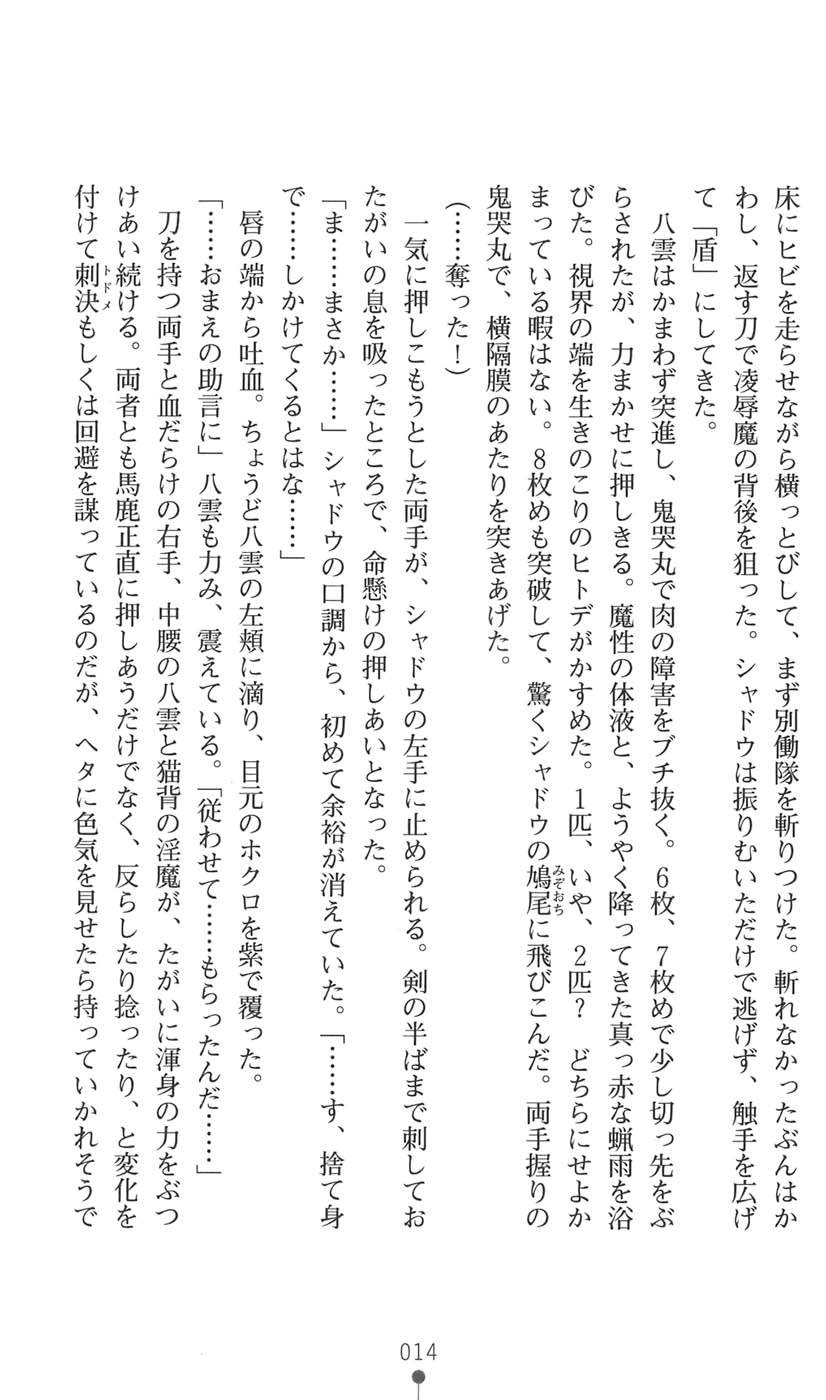 床にヒビを走らせながら横っとびして、まず別働隊を斬りつけた。斬れなかったぶんはか
わし、返す刀で凌辱魔の背後を狙った。シャドウは振りむいただけで逃げず、触手を広げ
て「盾」にしてきた。
　八雲はかまわず突進し、鬼哭丸で肉の障害をブチ抜く。６枚、７枚めで少し切っ先をぶ
らされたが、力まかせに押しきる。魔性の体液と、ようやく降ってきた真っ赤な蝋雨を浴
びた。視界の端を生きのこりのヒトデがかすめた。１匹、いや、２匹？　どちらにせよか
まっている暇はない。８枚めも突破して、驚くシャドウの鳩尾に飛びこんだ。両手握りの
みぞおち
鬼哭丸で、横隔膜のあたりを突きあげた。
（……奪った！）
　一気に押しこもうとした両手が、シャドウの左手に止められる。剣の半ばまで刺してお
たがいの息を吸ったところで、命懸けの押しあいとなった。
「ま……まさか……」シャドウの口調から、初めて余裕が消えていた。「……す、捨て身
で……しかけてくるとはな……」
　唇の端から吐血。ちょうど八雲の左頬に滴り、目元のホクロを紫で覆った。
「……おまえの助言に」八雲も力み、震えている。「従わせて……もらったんだ……」
　刀を持つ両手と血だらけの右手、中腰の八雲と猫背の淫魔が、たがいに渾身の力をぶつ
けあい続ける。両者とも馬鹿正直に押しあうだけでなく、反らしたり捻ったり、と変化を
付けて刺決もしくは回避を謀っているのだが、ヘタに色気を見せたら持っていかれそうで
トドメ
014